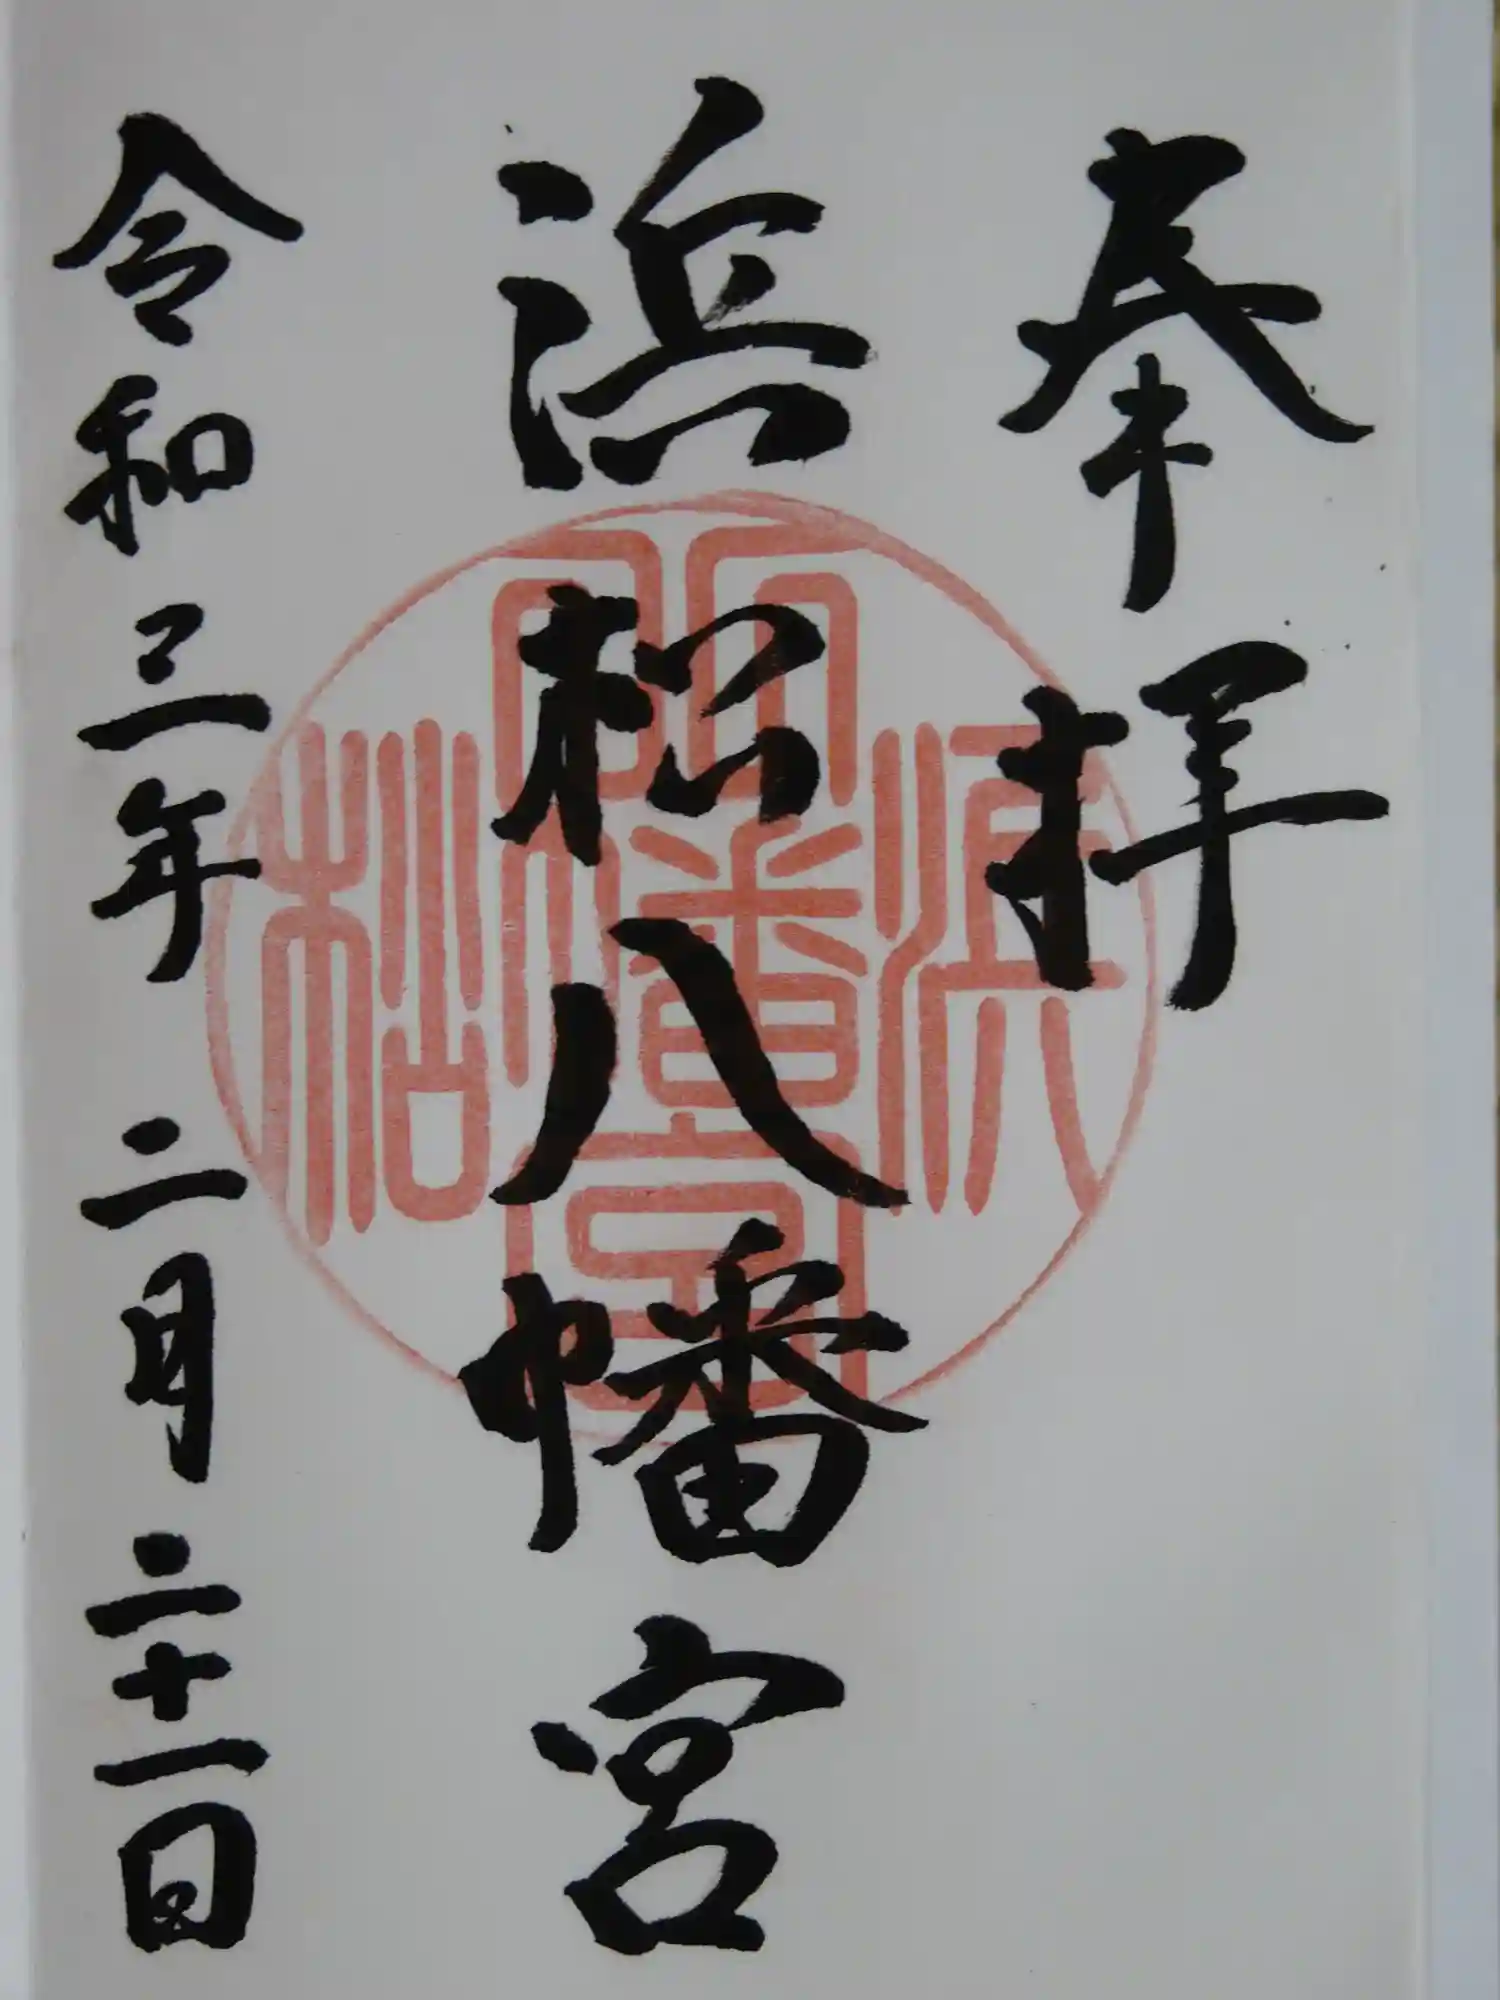 奉拝
浜松八幡宮
浜松八幡宮
令和三年二月二十一日